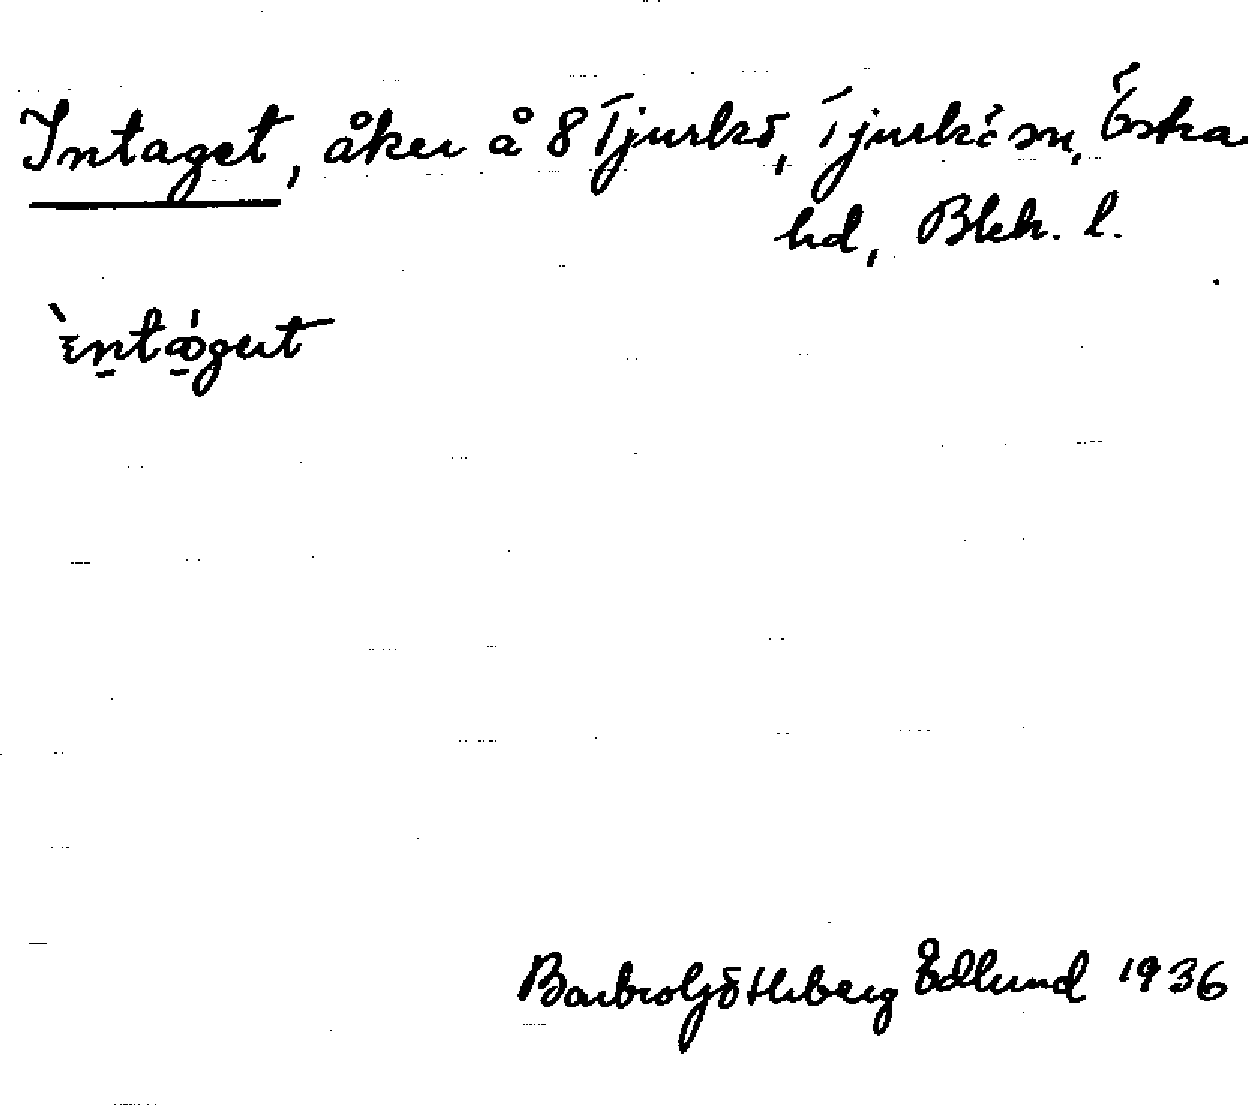 Intaget, åker å 8 Tjurkö, Tjurkö sn, Östra
hd, Blek. l.
Barbro Göthberg Edlund 1936